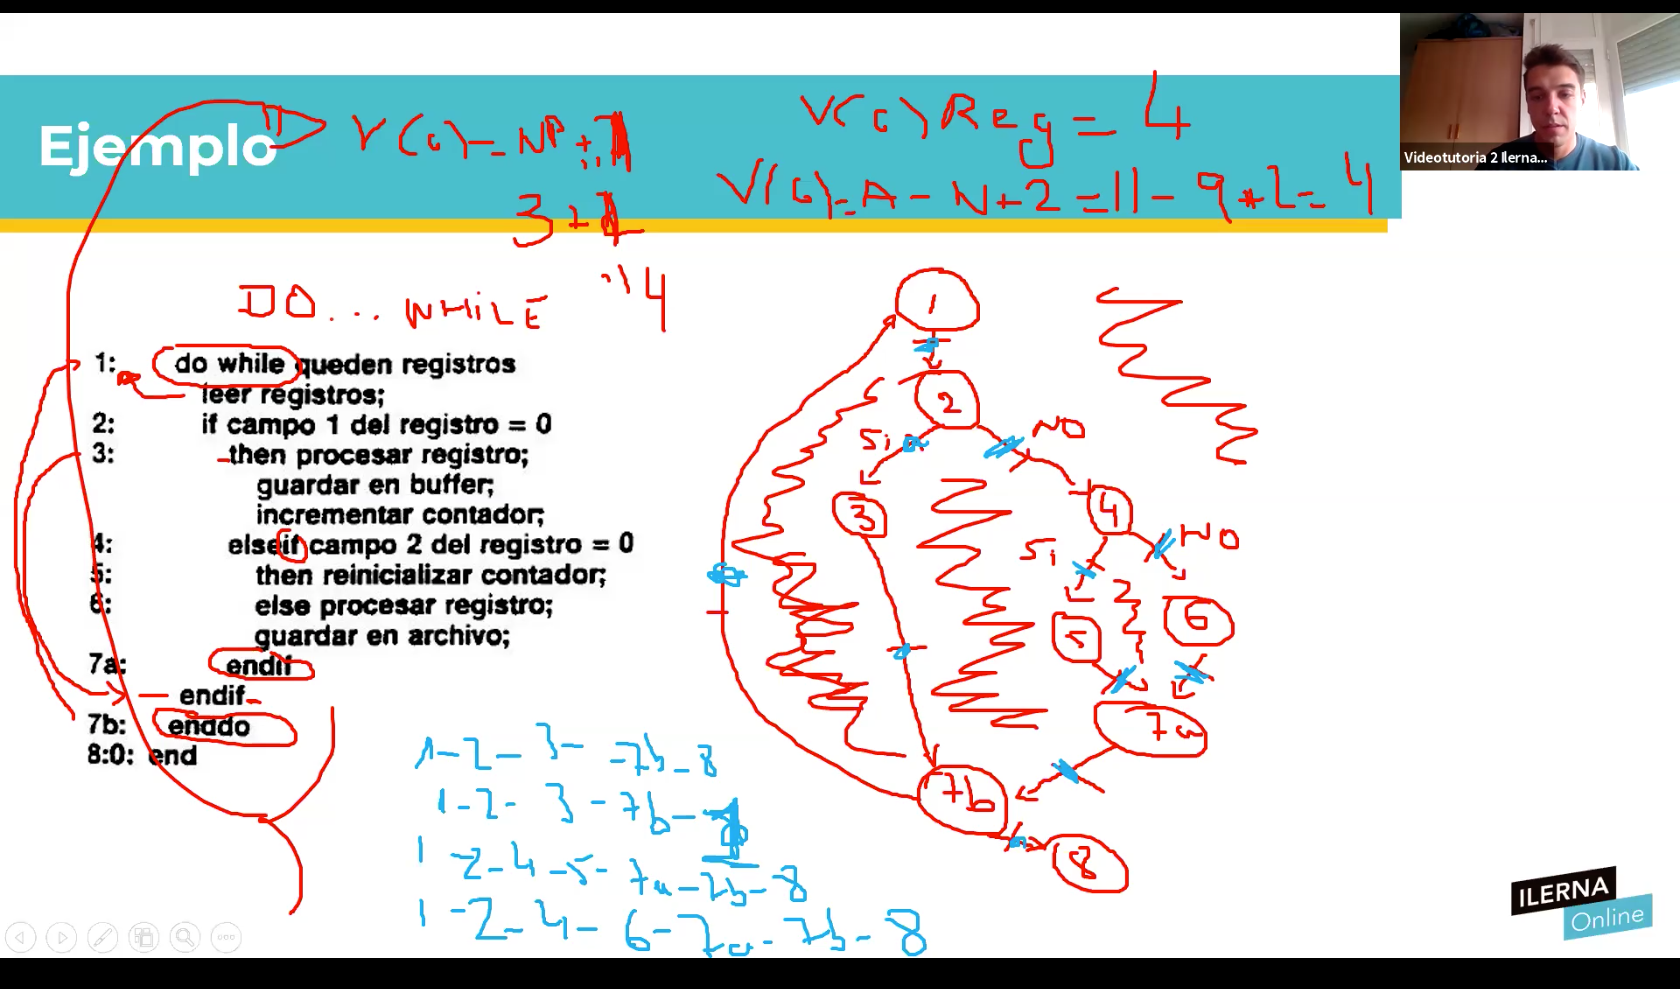 Ejemplo
V(G)=NP+1
3+1
∴ 4
V(G) Reg = 4
V(G)=A-N+2=11-9+2=4
Videotutoria 2 Ilerna...
DO... WHILE
1: do while queden registros
leer registros;
2: if campo 1 del registro = 0
3: then procesar registro;
guardar en buffer;
incrementar contador;
4: elseif campo 2 del registro = 0
5: then reinicializar contador;
6: else procesar registro;
guardar en archivo;
7a: endif
endif
7b: enddo
8:0: end
1
2
Si NO
3
4
Si NO
5 6
7a
7b
8
1-2-3-7b-8
1-2-3-7b-1
1-2-4-5-7a-7b-8
1-2-4-6-7a-7b-8
ILERNA
Online